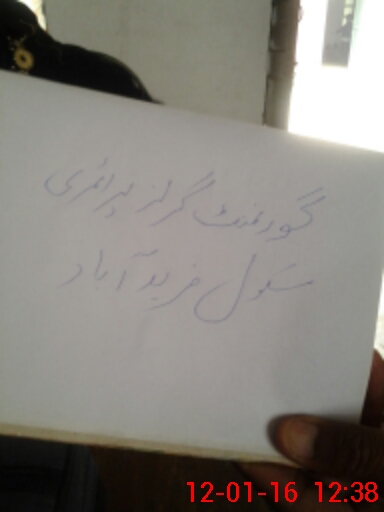 گورنمنٹ گرلز پرائمری
سکول فرید آباد
12-01-16 12:38